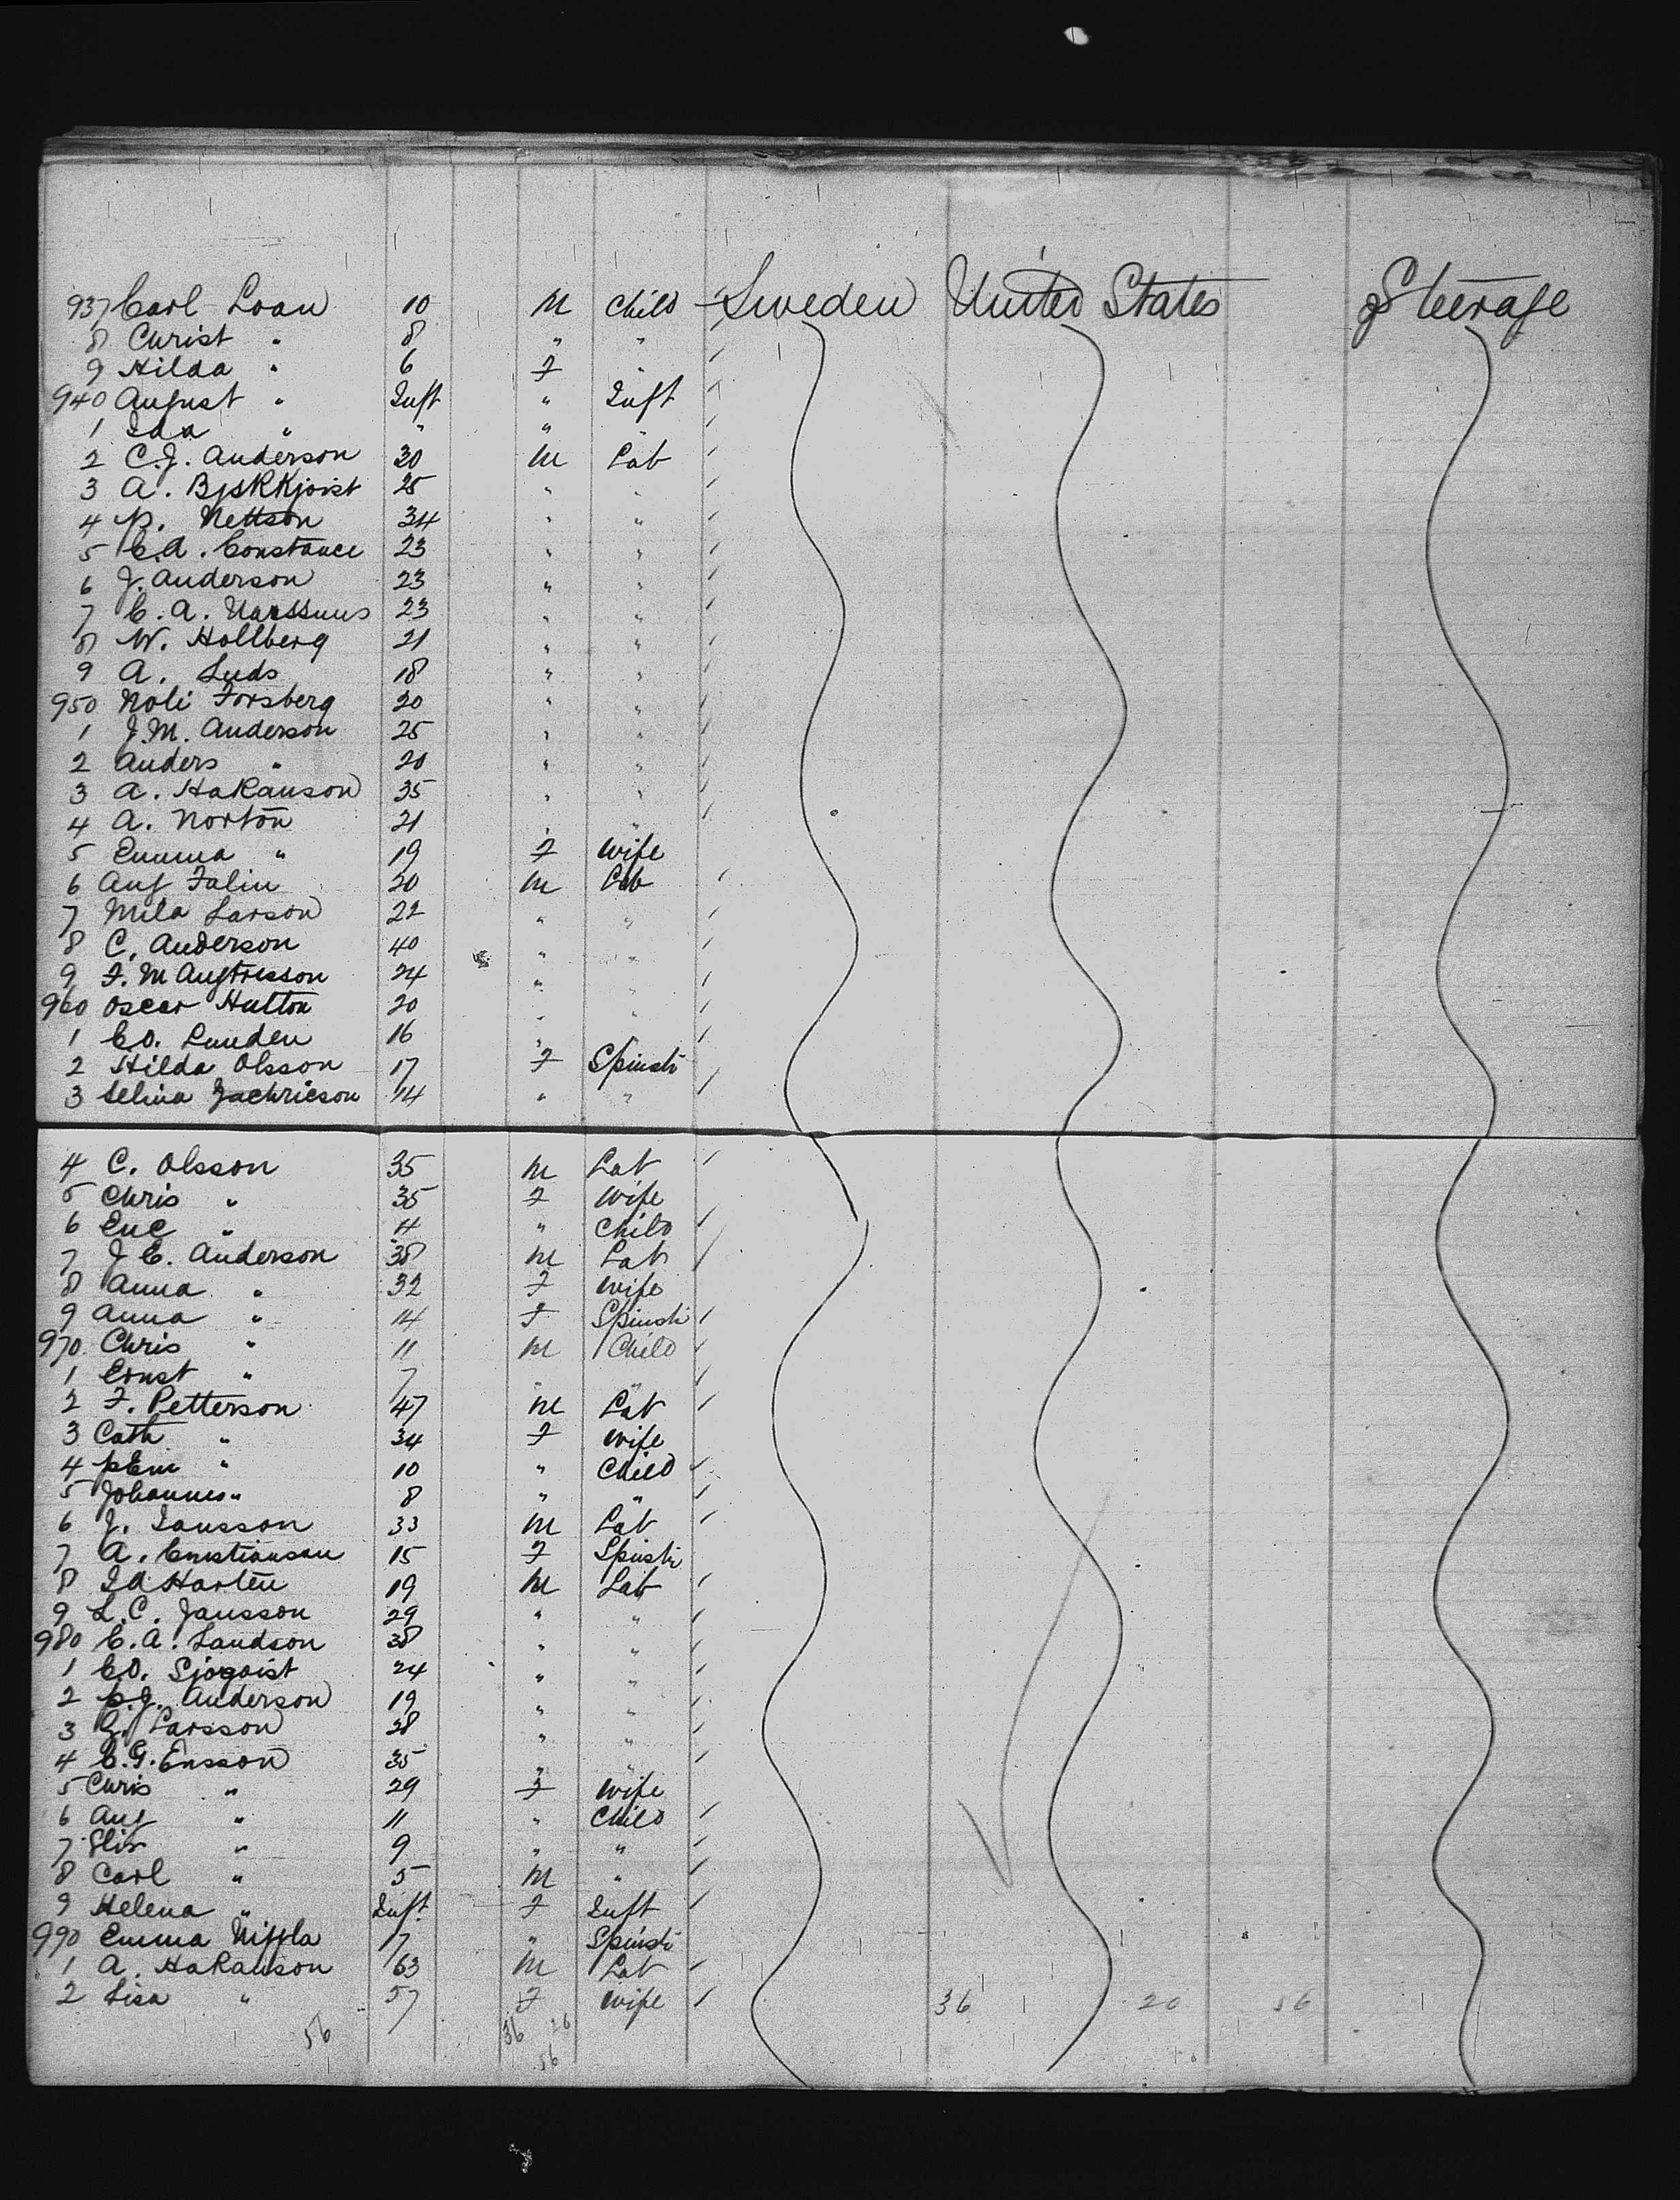 937 Carl Loan 10 M Child Sweden United States Steerage
8 Christ " 8 " "
9 Hilda " 6 F "
940 August " Inft " Inft
1 Ida " " " "
2 C.J. Anderson 30 M Lab
3 A. 25 " "
4 P. Nettson 34 " "
5 C.A. Constance 23 " "
6 J. Anderson 23 " "
7 C.A. 23 " "
8 W. Hollberg 21 " "
9 A. Luds 18 " "
950 Noli Forsberg 20 " "
1 J.M. Anderson 25 " "
2 Anders " 20 " "
3 A. Hakanson 35 " "
4 A. Norton 21 " "
5 Emma " 19 F Wife
6 Aug Falin 20 M Lab
7 Mila Larson 22 " "
8 C. Anderson 40 " "
9 F. M 24 " "
960 Oscar Hutton 20 " "
1 C.O. Lunden 16 "
2 Hilda Olsson 17 F Spinstr
3 Selina Zachricson 14 " "
4 C. Olsson 35 M Lab
5 Chris " 35 F Wife
6 Enc " 4 " Child
7 J E. Anderson 38 M Lab
8 Anna " 32 F Wife
9 Anna " 14 F Spinstr
970 Chris " 11 M Child
1 Ernst " 7 " "
2 F. Petterson 47 M Lab
3 Cath " 34 F Wife
4 " 10 " Child
5 Johannes " 8 " "
6 J. Jansson 33 M Lab
7 A. Cristianson 15 F Spinstr
8 Harten 19 M Lab
9 L.C. Jansson 29 " "
980 C.A. Landson 38 " "
1 C.O. Sjoqvist 24 " "
2 P.J. Anderson 19 " "
3 G. Larsson 28 " "
4 C.G. Ensson 35 " "
5 Chris " 29 F Wife
6 Aug " 11 " Child
7 Elis " 9 " "
8 Carl " 5 M "
9 Helena " Inft F Inft
990 Emma Niffla 17 " Spinstr
1 A. Hakanson 63 M Lab
2 Lisa " 57 F Wife 36 20 56
56 36 26
56